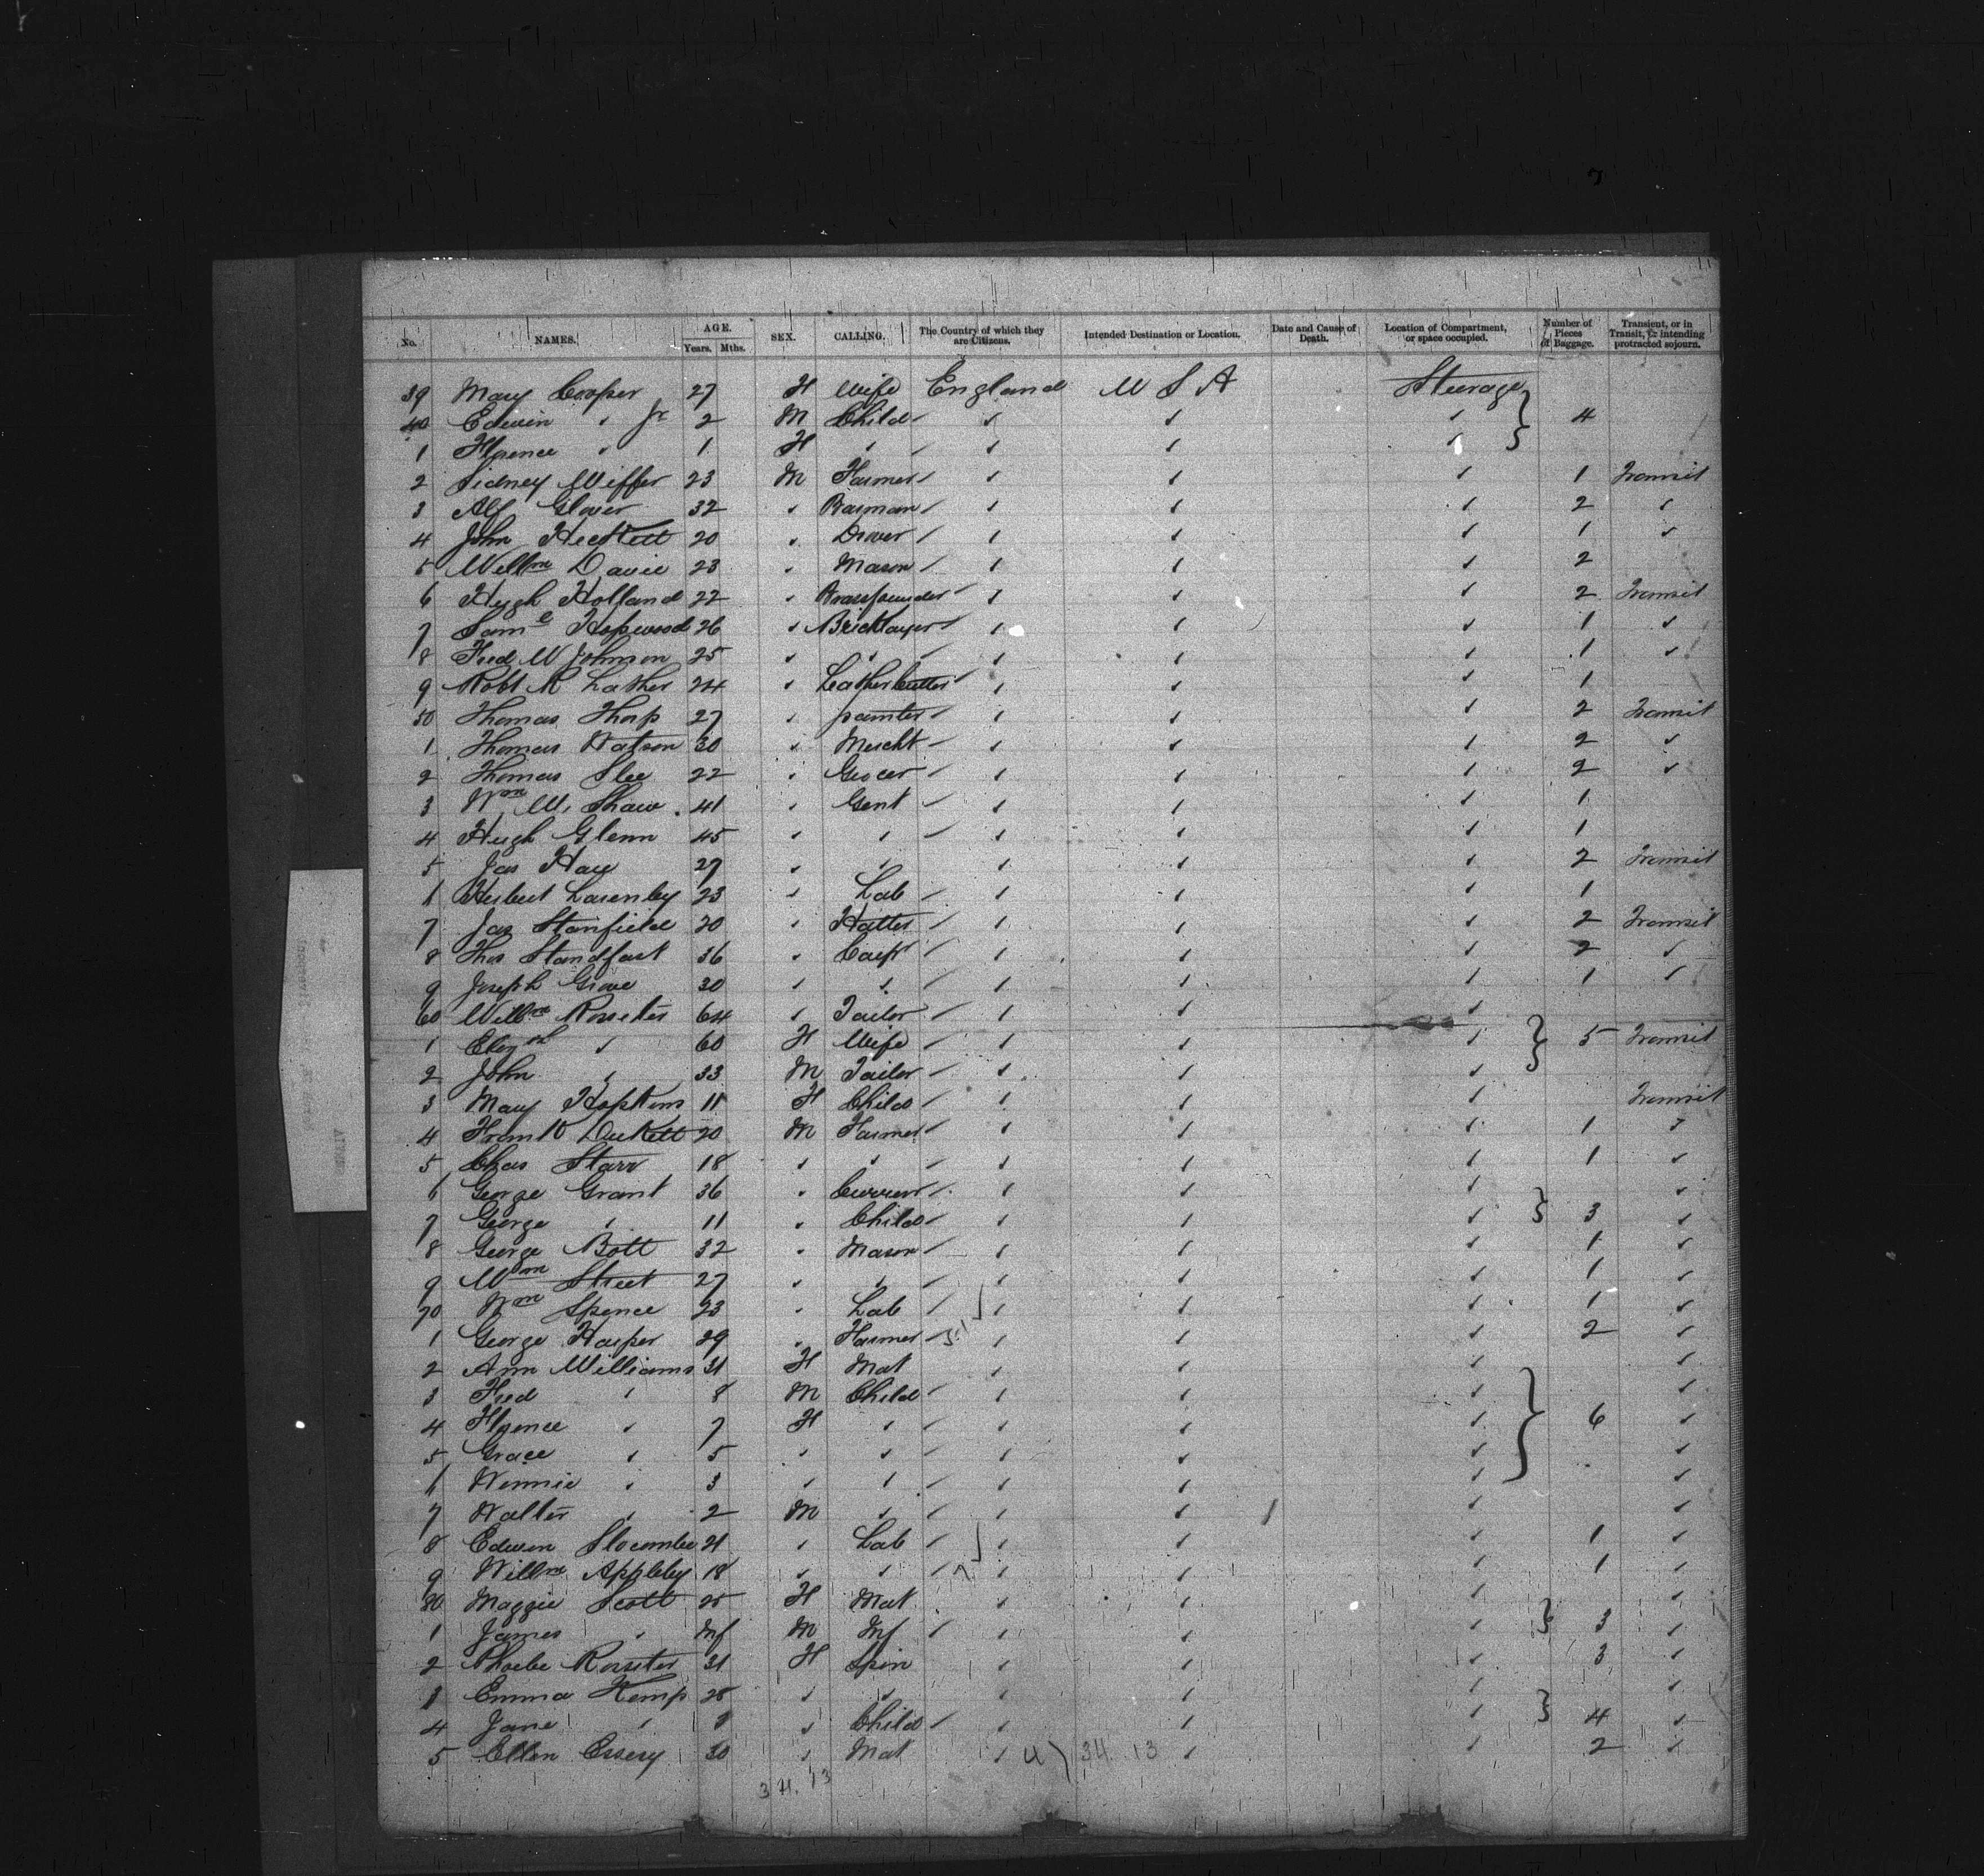 No. NAMES. AGE. Years. Mths. SEX. CALLING. The Country of which they are Citizens. Intended Destination or Location. Date and Cause of Death. Location of Compartment, or space occupied. Number of Pieces of Baggage. Transient, or in Transit, or intending protracted sojourn.
39 Mary Cooper 27 F Wife England U S A Steerage
40 Edwin " Jr 2 M Child " " " 4
1 Florence " 1 F " " " "
2 Sidney 23 M Farmer " " " 1 Transit
3 Alf Glover 32 " Barman " " " 2 "
4 John Heckett 20 " Drover " " " 1 "
5 Willm Davie 23 " Mason " " " 2
6 Hugh Holland 22 " Brassfounder " " " 2 Transit
7 Saml Hopwood 26 " Bricklayer " " " 1 "
8 Fred W Johnson 25 " " " " " 1 "
9 Robt R Lather 24 " Leather Cutter " " " 1
50 Thomas Thorp 27 " painter " " " 2 Transit
1 Thomas Watson 30 " Mercht " " " 2 "
2 Thomas Slee 22 " Grocer " " " 2 "
3 Wm W. Shaw 41 " Gent " " " 1
4 Hugh Glenn 45 " " " " " 1
5 Jas 27 " " " " " 2 Transit
6 Herbert Lazenby 23 " Lab " " " 1
7 Jas Stanfield 20 " Hatter " " " 2 Transit
8 Thos Standfast 36 " Carp " " " 2 "
9 Joseph Grove 30 " " " " " 1 "
60 Willm Rossiter 64 " Tailor " " "
1 Elizth " 60 F Wife " " " 5 Transit
2 John " 33 M Tailor " " "
3 Mary Hopkins 11 F Child " " " Transit
4 Frank Duckett 20 M Farmer " " " 1 "
5 Chas Starr 18 " " " " " 1 "
6 George Grant 36 " Currier " " " "
7 George " 11 " Child " " " 3 "
8 George Bott 32 " Mason " " " 1 "
9 Wm Street 27 " " " " " 1 "
70 Wm Spence 23 " Lab " " " 1 "
1 George Harper 29 " Farmer " " " 2 "
2 Ann Williams 31 F Mat " " " "
3 Fred " 8 M Child " " " "
4 Florence " 7 F " " " " 6 "
5 Grace " 5 " " " " " "
6 Winnie " 3 " " " " " "
7 Walter " 2 M " " " " "
8 Edwin Slocombe 21 " Lab " " " 1 "
9 Willm Appleby 18 " " " " " 1 "
80 Maggie Scott 25 F Mat " " " "
1 James " Inf M Inf " " " 3 "
2 Phoebe Rossiter 31 F Spin " " " 3 "
3 Emma Kemp 28 " " " " " "
4 Jane " 8 " Child " " " 4 "
5 Ellen Essery 30 " Mat " 34. 13 " " 2 "
34. 13